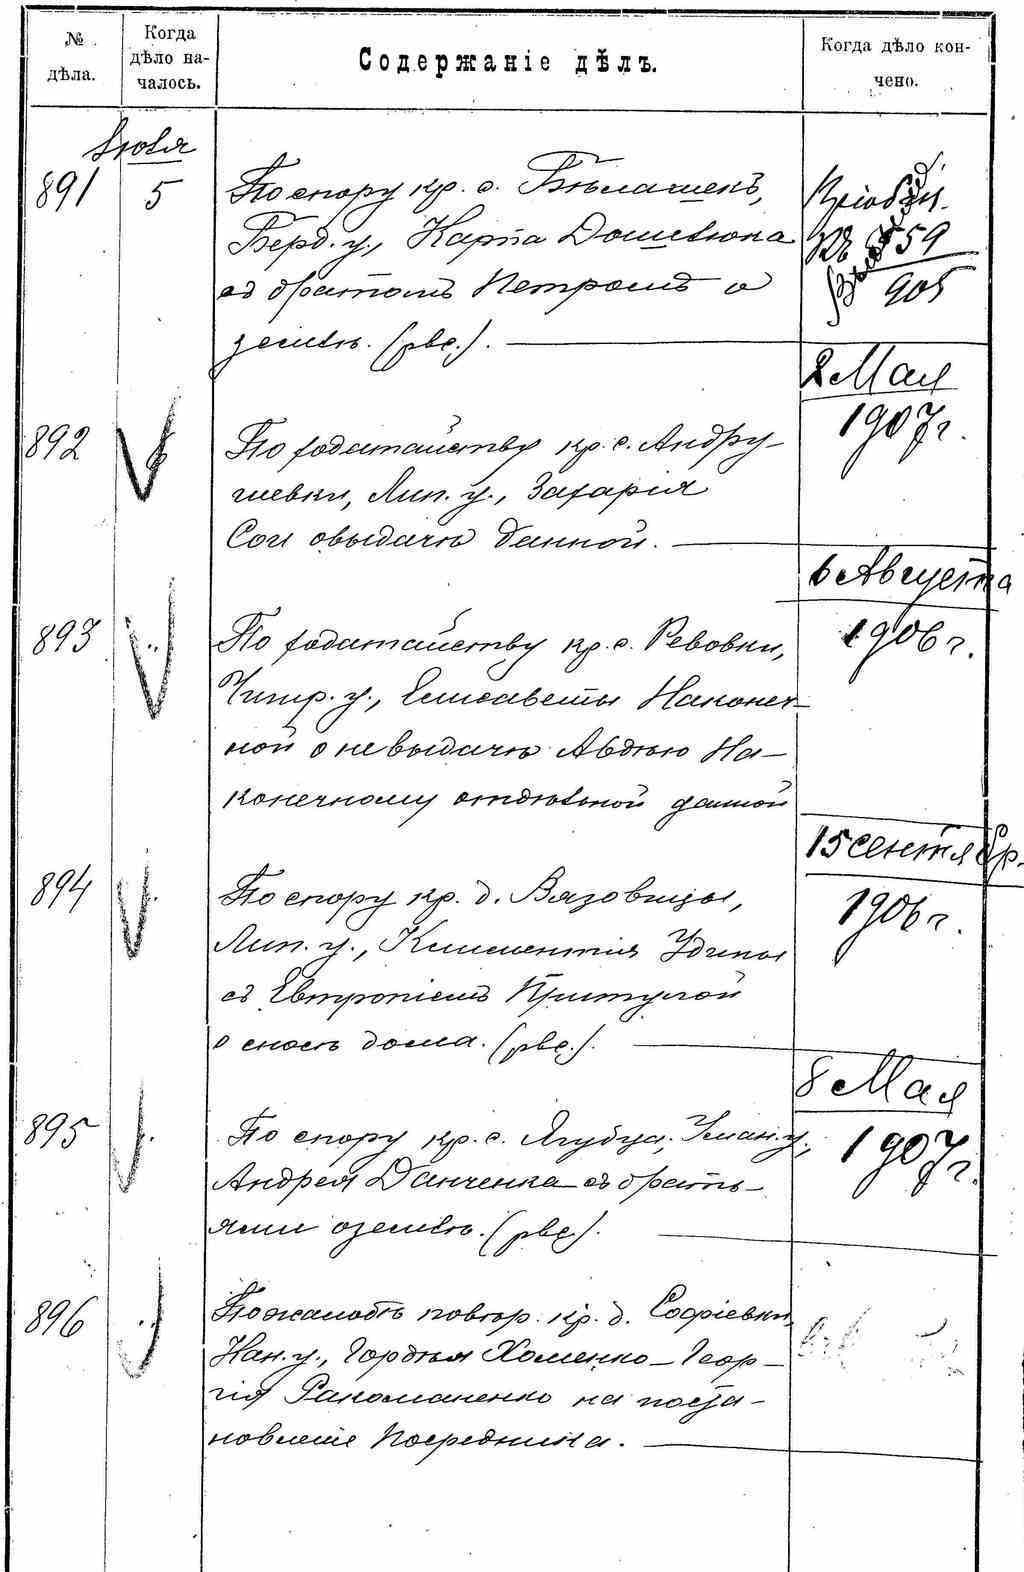 № дѣла.
Когда дѣло на-
чалось.
Содержаніе дѣлъ.
Когда дѣло кон-
чено.
Іюля
891
5
По спору кр. с. Бѣлашекъ,
Берд. у., Карпа
съ братомъ Петромъ о
землѣ. (рвс.).
59
905
2 Мая
1907 г.
892
По ходатайству кр. с. Андру-
шевки, Лип. у., Захарія
Сои о выдачѣ данной.
6 Августа
1906 г.
893
По ходатайству кр. с. Ревовки,
Чигир. у., Елисаветы Наконеч-
ной о невыдачѣ Авдѣю На-
конечному отдѣльной данной
15 Сентябр.
1906 г.
894
По спору кр. д. Вязовицы,
Лип. у., Климентія
съ Евтропіемъ Притулой
о сносѣ дома. (рвс.).
8 Мая
1907 г.
895
По спору кр. с. Ягубца, Уман. у.,
Андрея Данченка съ брать-
ями о землѣ. (рвс.).
896
По жалобѣ повѣр. кр. д. Софіевки,
Кан. у., Гордѣя Хоменко - Геор-
гія Ракоманенко на поста-
новленіе Посредника.